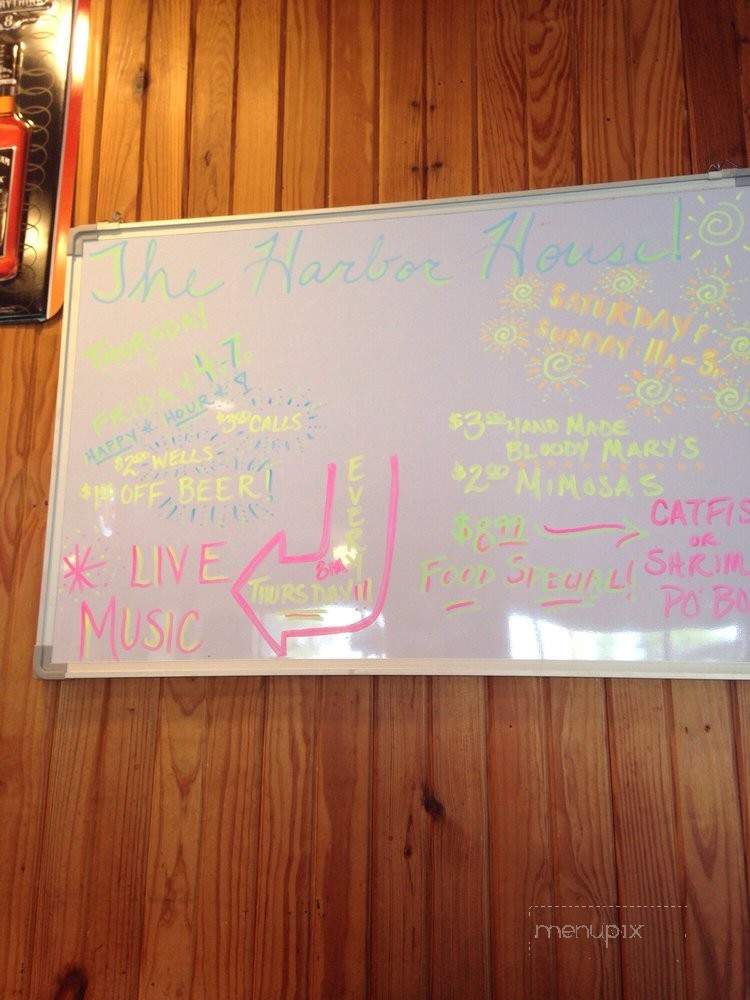 The Harbor House!
THURSDAY
FRIDAY 4-7
HAPPY HOUR
$3.00 CALLS
$2.00 WELLS
$1.00 OFF BEER!
* LIVE
MUSIC
EVERY
THURSDAY!!
SATURDAY &
SUNDAY 11A-3
$3.00 HAND MADE
BLOODY MARY'S
$2.00 MIMOSAS
FOOD SPECIAL!
CATFIS
OR
SHRIM
PO'BO
menupix